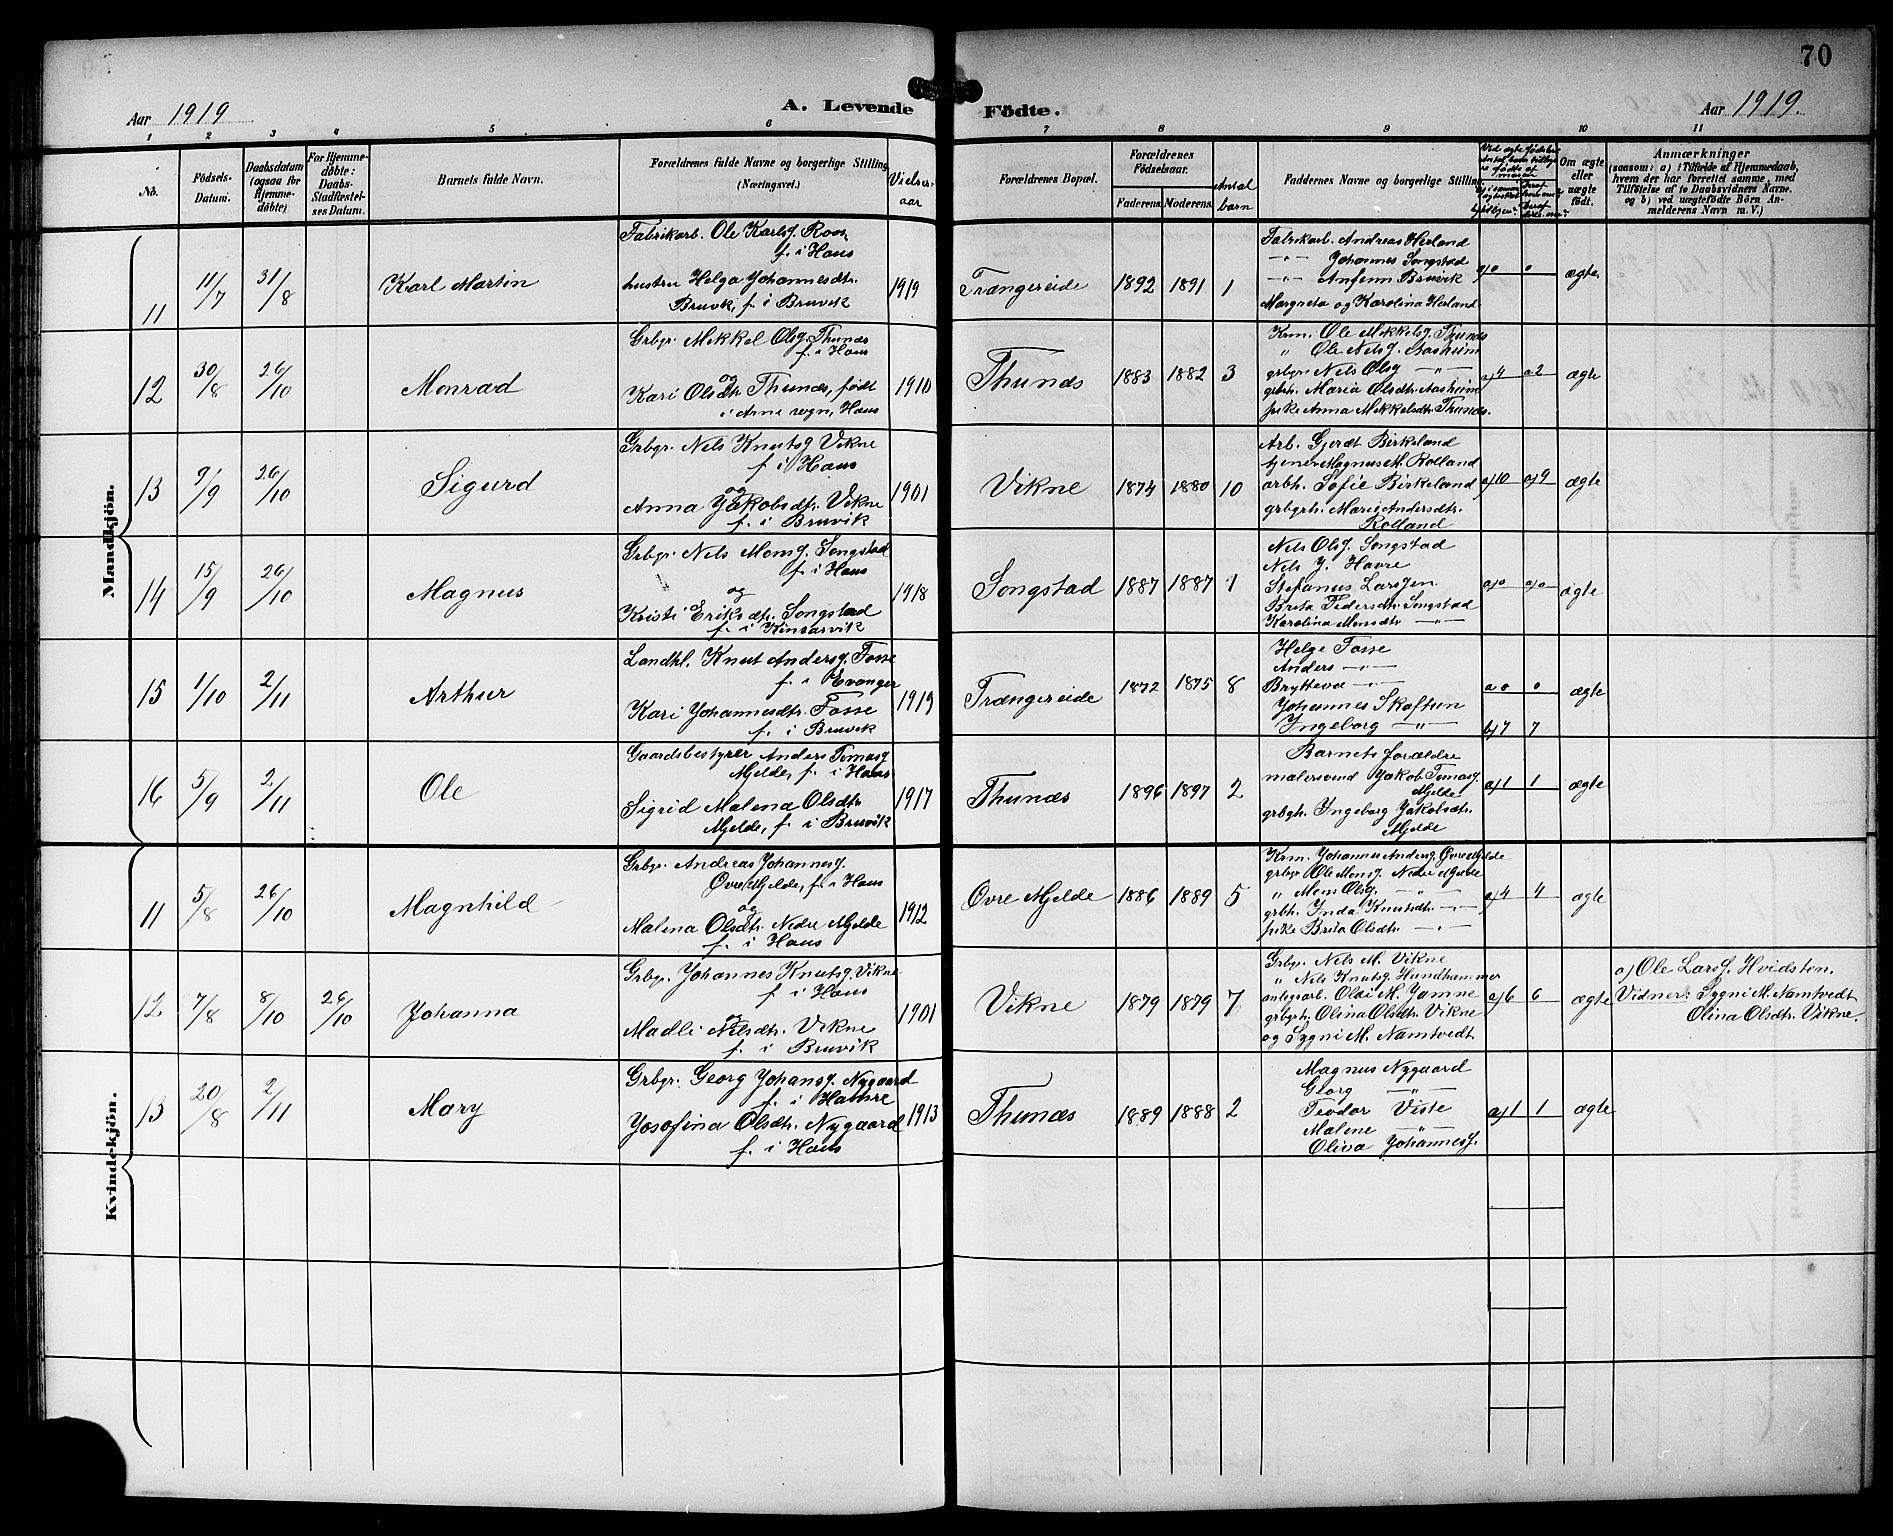 70
Aar 1919
A. Levende
Födte.
Aar 1919.
1 2 3 4 5 6 7 8 9 10 11
No.
Födsels-
Datum.
Daabsdatum
(ogsaa for
Hjemme-
döbte)
For Hjemme-
döbte:
Daabs-
Stadfæstel-
ses Datum.
Barnets fulde Navn.
Forældrenes fulde Navne og borgerlige Stilling
(Næringsvei.)
Vielses-
aar
Forældrenes Bopæl.
Forældrenes
Födselsaar.
Faderens.
Moderens.
Antal
barn
Faddernes Navne og borgerlige Stilling
Om ægte
eller
uægte
födt.
Anmærkninger
(saasom: a) i Tilfælde af Hjemmedaab,
hvem der har forrettet samme, med
Tilföielse af to Daabsvidners Navne.
og b) ved uægtefödte Börn An-
melderens Navn m. V.)
Mandkjön.
11
11/7
31/8
Karl Martin
Fabrikarb. Ole Karlsg. Roos,
f. i Haus
hustru Helga Johannesdtr.
Bruvik, f. i Bruvik
1919
Trængereide
1892
1891
1
Fabrikarb. Andreas Herland
-"- Johannes Songstad
-"- Anfinn Bruvik
Margreta og Karolina Herland
a) o
o
ægte
12
30/8
26/10
Monrad
Grbgr. Mekkel Olsg. Thunæs
f. i Haus
og
Kari Olsdtr. Thunæs, født
i Arne sogn, Haus
1910
Thunæs
1883
1882
3
Krm. Ole Mekkelsg. Thunæs
" Ole Nelsg. Aasheim
grbgr. Nels Olsg -"-
grbrh. Maria Olsdtr. Aasheim
pike Anna Mekkelsdtr. Thunæs.
a) 4
a 2
ægte
13
9/9
26/10
Sigurd
Grbgr. Nels Knutsg Vikne
f. i Haus
og
Anna Jakobsdtr. Vikne
f. i Bruvik
1901
Vikne
1874
1880
10
Arb. Gjerdt Birkeland
tjener Magnus M. Rolland
arbh. Sofie Birkeland
grbgrh. Marie Andersdtr.
Rolland
a) 10
a) 9
ægte
14
15/9
26/10
Magnus
Grbgr. Nels Monsg. Songstad
f. i Haus
og
Kristi Eriksdtr. Songstad
f. i Kinsarvik
1918
Songstad
1887
1887
1
Nels Olsg. Songstad
Nels J. Havre
Stefanus Larsgen
Brita Pedersdtr. Songstad
Karolina Monsdtr. -"-
a) o
a) o
ægte
15
1/10
2/11
Arthur
Landhl. Knut Andersg. Fosse
f. i Evanger
Kari Johannesdtr. Fosse
f. i Bruvik
1919
Trængereide
1872
1875
8
Helge Fosse
Anders -"-
Brytteva -"-
Johannes Skaftun
Ingeborg -"-
a o
o
b) 7
7
ægte
16
5/9
2/11
Ole
Gaardsbestyrer Anders Tomasg
Mjelde, f. i Haus
Sigrid Malena Olsdtr.
Mjelde, f. i Bruvik
1917
Thunæs
1896
1897
2
Barnets forældre
malersvend Jakob Tomasg.
Mjelde
grbgh. Ingeborg Jakobsdtr.
Mjelde
a) 1
1
ægte
Kvindekjön.
11
5/8
26/10
Magnhild
Grbgr. Andreas Johannesg.
Øvre Mjelde, f. i Haus
og
Malena Olsdtr. Nedre Mjelde
f. i Haus
1912
Øvre Mjelde
1886
1889
5
Krm. Johannes Andersg. Øvre Mjelde
grbgr Ole Monsg. Nedre Mjelde
" Mons Olsg. -"-
grbh. Inda Knutsdtr. -"-
pike Brita Olsdtr. -"-
a) 4
4
ægte
12
7/8
8/10
26/10
Johanna
Grbgr. Johannes Knutsg. Vikne
f. i Haus
og
Madli Nilsdtr. Vikne
f. i Bruvik
1901
Vikne
1879
1879
7
Grbgr. Nels M. Vikne
" Nels Knutsg. Hundhammer
anlegsarb. Oldi M. Jamne
grbgrh. Olina Olsdtr. Vikne
og Sygni M. Namtvedt
a) 6
6
ægte
a) Ole Larsg. Hvidsten.
Vidner: Sygni M. Namtvedt
Olina Olsdtr. Vikne.
13
20/8
2/11
Mary
Grbgr. Georg Johansg. Nygaard
f. i Hamre
Josofina Olsdtr. Nygaard
f. i Haus
1913
Thunæs
1889
1888
2
Magnus Nygaard
Georg -"-
Teodor Viste
Malene -"-
Oliva Johannesg.
a) 1
1
ægte